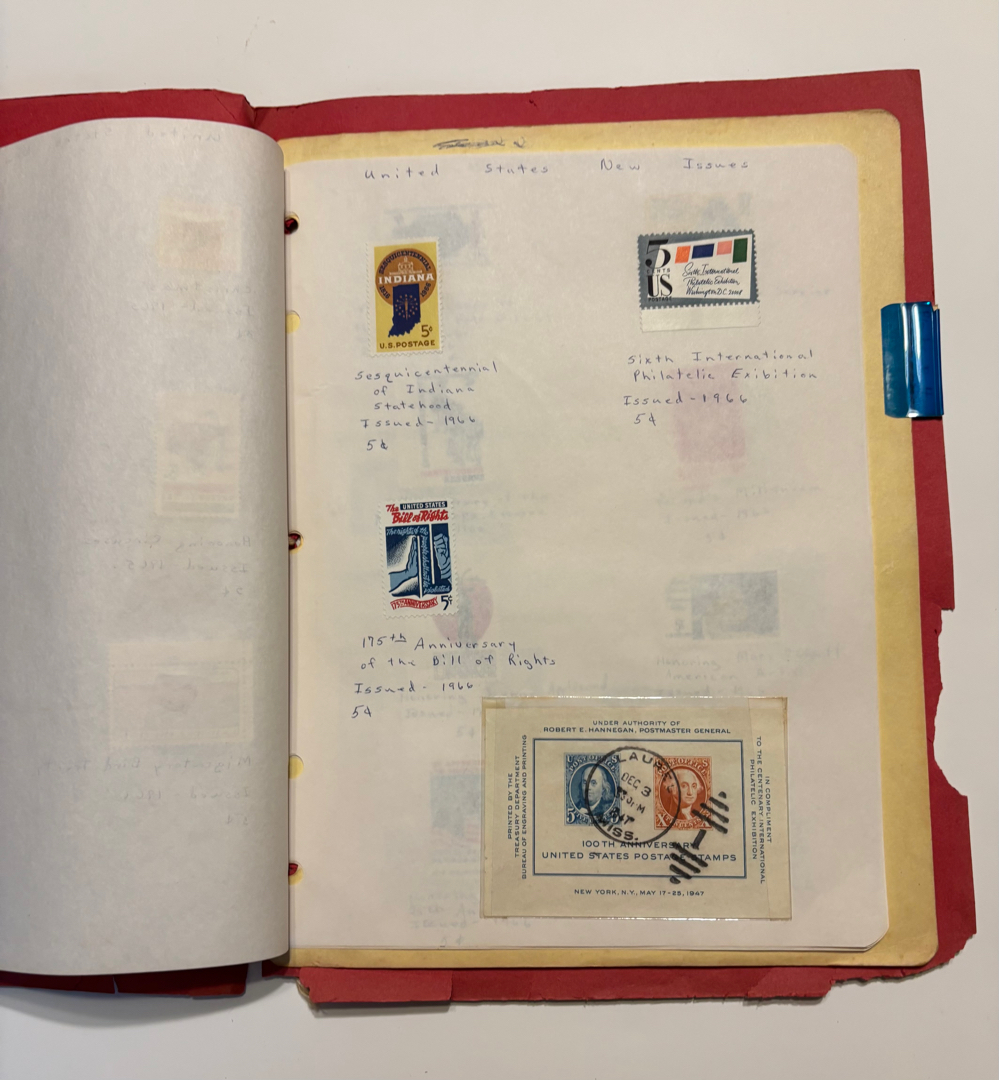 United States New Issues
SESQUICENTENNIAL
INDIANA
1816 1966
5¢
U.S. POSTAGE
Sesquicentennial
of Indiana
Statehood
Issued - 1966
5¢
5 CENTS
US
POSTAGE
Sixth International
Philatelic Exhibition
Washington D.C.
Sixth International
Philatelic Exibition
Issued - 1966
5¢
The UNITED STATES
Bill of Rights
The rights of
people shall not be
175TH ANNIVERSARY
5¢
175th Anniversary
of the Bill of Rights
Issued - 1966
5¢
UNDER AUTHORITY OF
ROBERT E. HANNEGAN, POSTMASTER GENERAL
PRINTED BY THE
TREASURY DEPARTMENT
BUREAU OF ENGRAVING AND PRINTING
IN COMPLIMENT
TO THE CENTENARY INTERNATIONAL
PHILATELIC EXHIBITION
POST OFFICE
LAUREL
DEC 3
MISS.
100TH ANNIVERSARY
UNITED STATES POSTAGE STAMPS
NEW YORK, N.Y., MAY 17-25, 1947